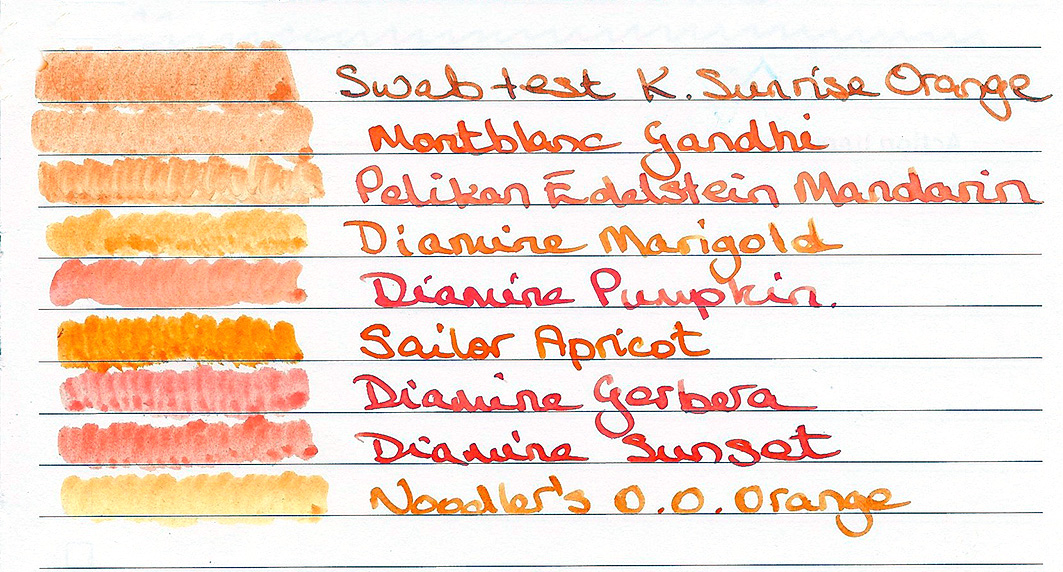 Swab test K. Sunrise Orange
Montblanc Gandhi
Pelikan Edelstein Mandarin
Diamine Marigold
Diamine Pumpkin.
Sailor Apricot
Diamine Gerbera
Diamine Sunset
Noodler's O.O. Orange